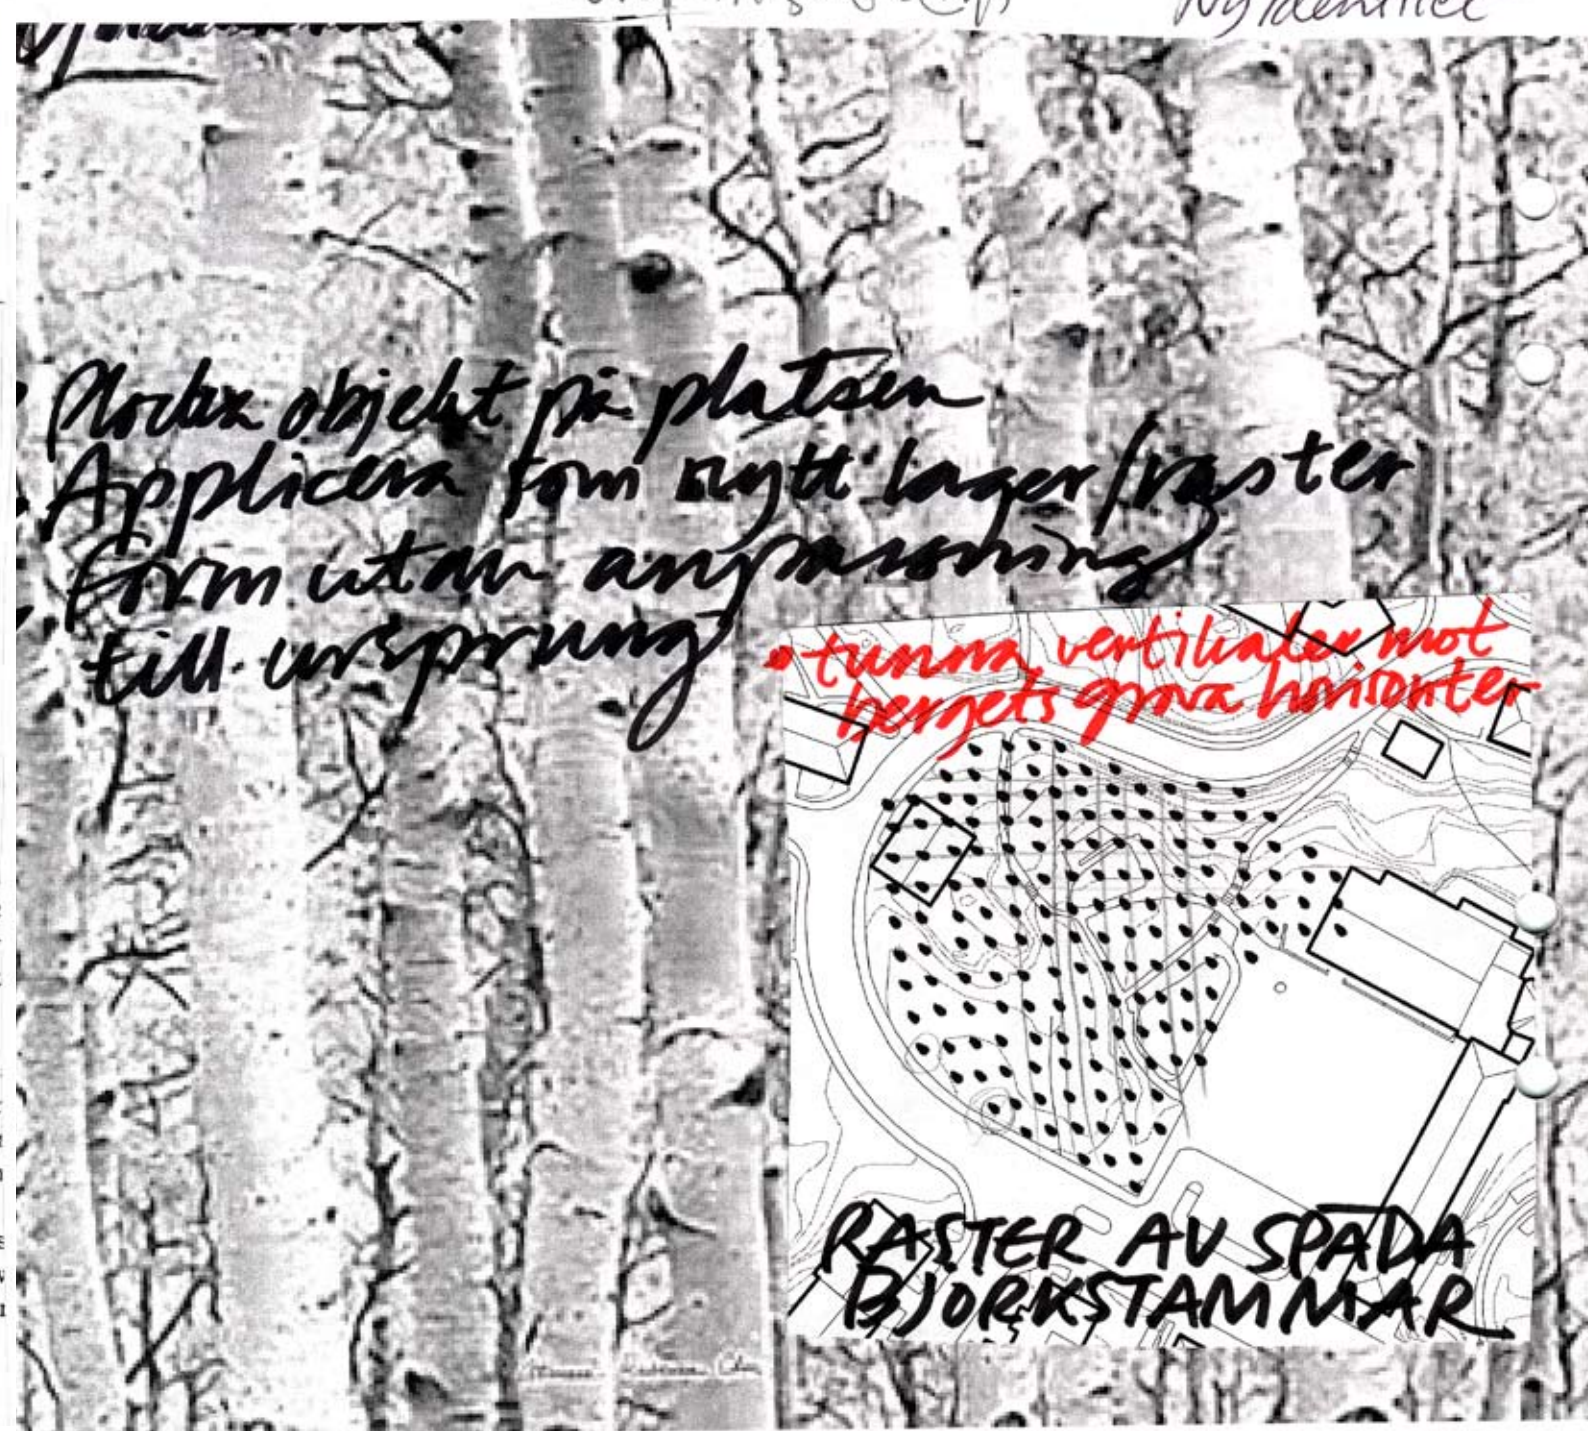 Ny identitet
objekt på platsen
Applicera som nytt lager/raster
form utan anpassning
till ursprung
• tunna vertikaler mot
bergets grova horisonter
RASTER AV SPÄDA
BJÖRKSTAMMAR